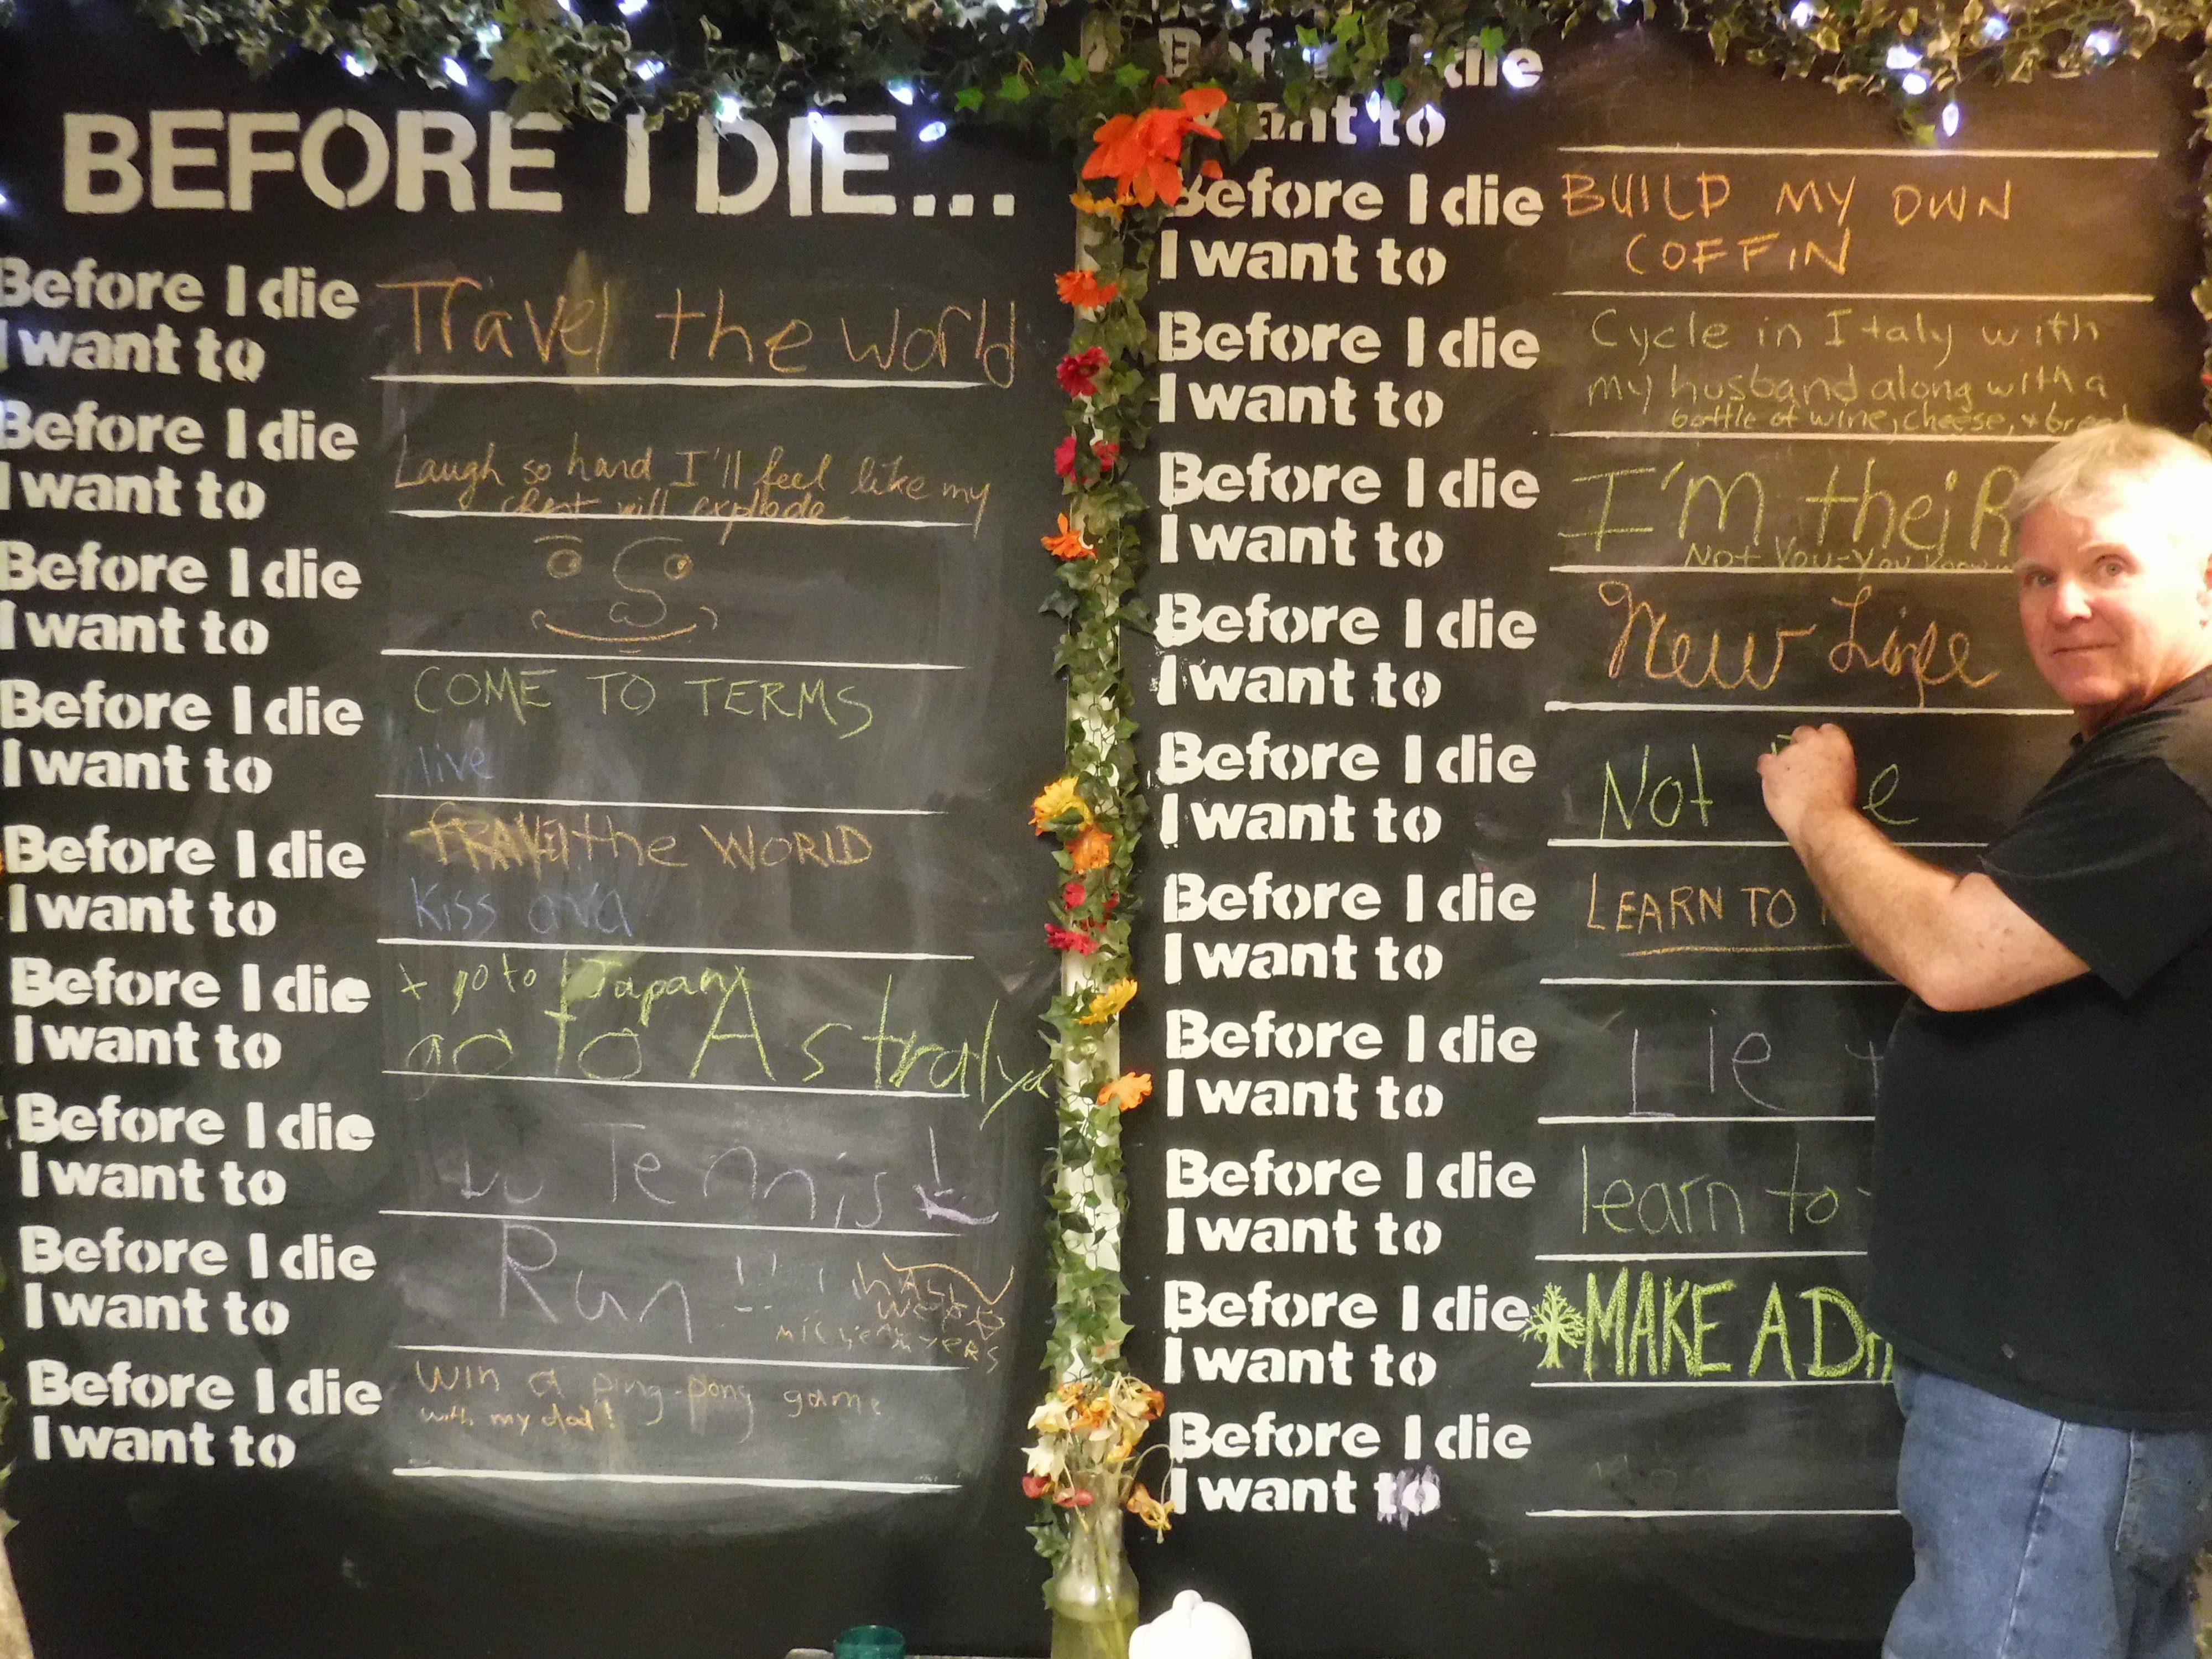 BEFORE I DIE...
Before I die Travel the World
I want to
Before I die
I want to Laugh so hard I'll feel like my
chest will explode
Before I die
I want to
Before I die COME TO TERMS
I want to live
Before I die TRAVEl the WORLD
I want to Kiss ava
Before I die + go to Japan
I want to go to Astralya
Before I die
I want to Tennis
Before I die Run !!
I want to
Before I die win a ping-pong game
with my dad!
I want to
Before I die
want to
Before I die BUILD MY OWN
I want to COFFIN
Before I die Cycle in Italy with
I want to my husband along with a
bottle of wine, cheese, +
Before I die I'm theiR
I want to Not You-You
Before I die New Life
I want to
Before I die Not e
I want to
Before I die LEARN TO
I want to
Before I die Lie
I want to
Before I die learn to
I want to
Before I die MAKE A D
I want to
Before I die
I want to